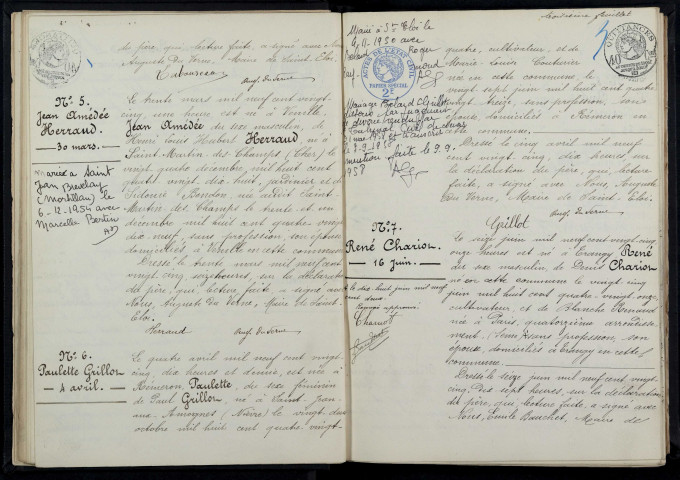 du père, qui, lecture faite, a signé avec Nous
Auguste Du Verne, Maire de Saint-Eloi.
Aug. du Verne
N° 5.
Jean Amédée
Herraud.
30 mars.
Marié à Saint
Jean
le
6-12-1954 avec
Marcelle Bertin
Le trente mars mil neuf cent vingt-
cinq, une heure est né à
Jean Amédée du sexe masculin, de
Henri Louis Hubert Herraud, né à
Saint-Martin des Champs (Cher) le
vingt quatre décembre, mil huit cent
quatre vingt dix huit, jardinier et de
née audit Saint
Martin des Champs le trente et un
décembre mil huit cent quatre vingt
dix neuf, sans profession, son épouse
domiciliés à en cette commune
Dressé le trente mars mil neuf cent
vingt cinq heures, sur la déclaration
du père, qui, lecture faite, a signé avec
Nous, Auguste Du Verne, Maire de Saint-
Eloi.
Herraud Aug. du Verne
N° 6.
Paulette Grillon
4 avril.
Le quatre avril mil neuf cent vingt-
cinq, dix heures et demie, est née à
Rémeron, Paulette du sexe féminin
de Paul Grillon, né à Saint Jean-
aux-Amognes (Nièvre) le vingt deux
octobre mil huit cent quatre vingt-
Marié à St Eloi le
1950 avec
Roger
ACTES DE L'ETAT CIVIL
PAPIER SPECIAL
2F
Mariage
mention faite le 9.9.
1958
QUITTANCES
quatre, cultivateur, et de
Marie Louise Couturier
née en cette commune le
vingt sept juin mil huit cent quatre
vingt treize, sans profession, son
épouse, domiciliés à Rémeron en
cette commune.
Dressé le cinq avril mil neuf
cent vingt cinq, dix heures, sur
la déclaration du père, qui, lecture
faite, a signé avec Nous, Auguste
Du Verne, Maire de Saint-Eloi.
Grillot Aug. du Verne
N° 7.
René Charion.
16 Juin.
le dix huit juin mil neuf
Charriot
Le seize juin mil neuf cent vingt cinq,
onze heures est né à Trangy René
du sexe masculin, de Denis Charion
né en cette commune le vingt cinq
juin mil huit cent quatre-vingt onze
cultivateur, et de Blanche Renaud
née à Paris, quatorzième arrondisse-
ment, sans profession, son
épouse, domiciliés à Trangy en cette
commune
Dressé le seize juin mil neuf cent vingt-
cinq, dix sept heures, sur la déclaration
du père, qui, lecture faite, a signé avec
Nous, Emile Bauchet, Maire de